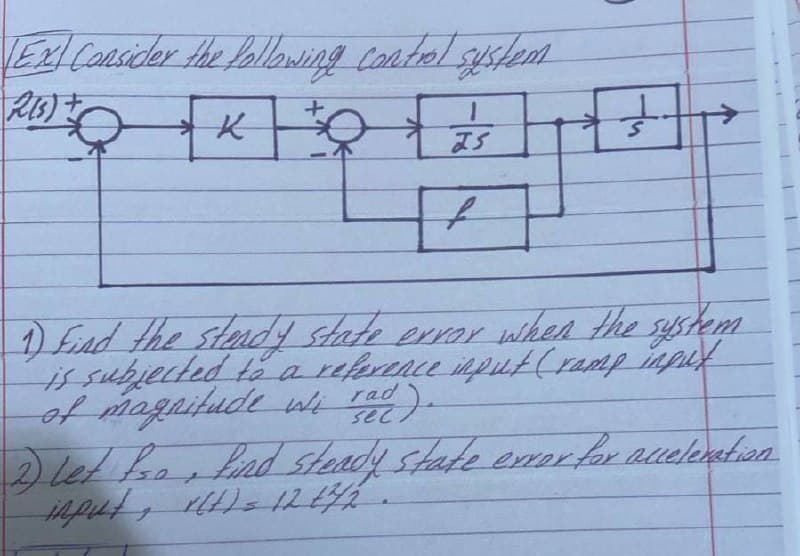 [Ex] Consider the following control system
R(s) +
K
+
1/Js
1/s
-
-
f
1) Find the steady state error when the system
is subjected to a reference input (ramp input
of magnitude wi rad/sec).
2) Let f=0, find steady state error for acceleration
input, r(t) = 12 t²/2.